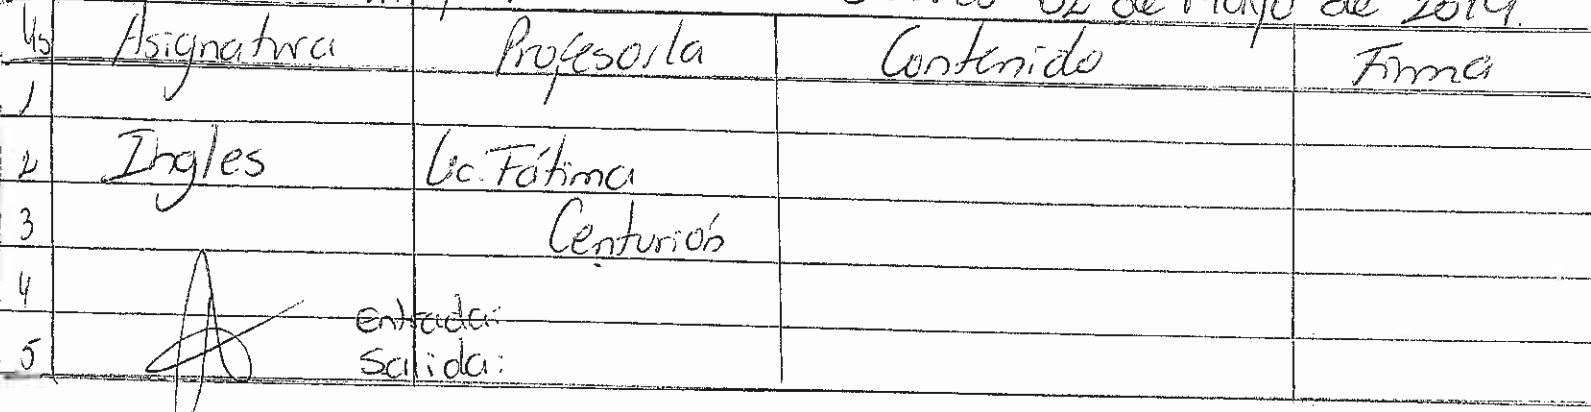 02 de Mayo de 2019.
Asignatura Profesor/a Contenido Firma
1
2 Ingles Lic. Fátima
3 Centurión
4
entrada:
5 Salida: